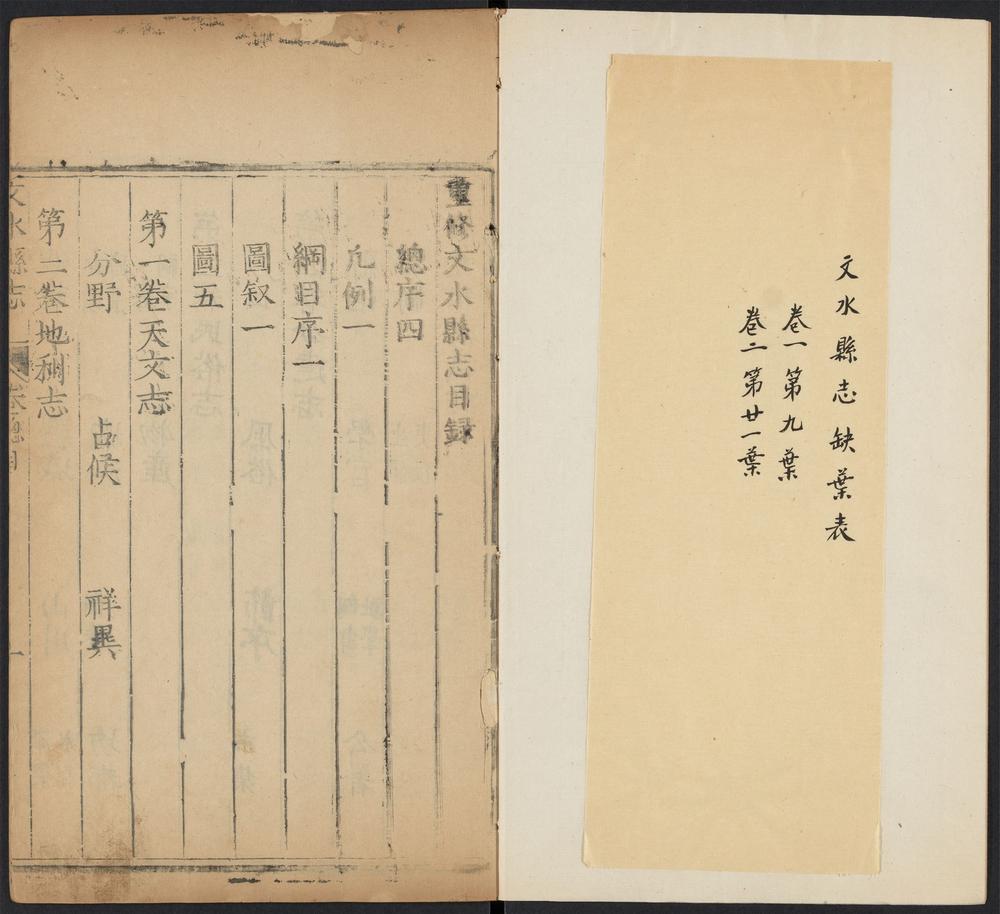 文水縣志缺葉表
卷一第九葉
卷二第廿一葉
重修文水縣志目録
總序四
凡例一
綱目序一
圖叙一
圖五
第一卷天文志
分野 占候 祥異
第二卷地利志
文水縣志 卷總目 一